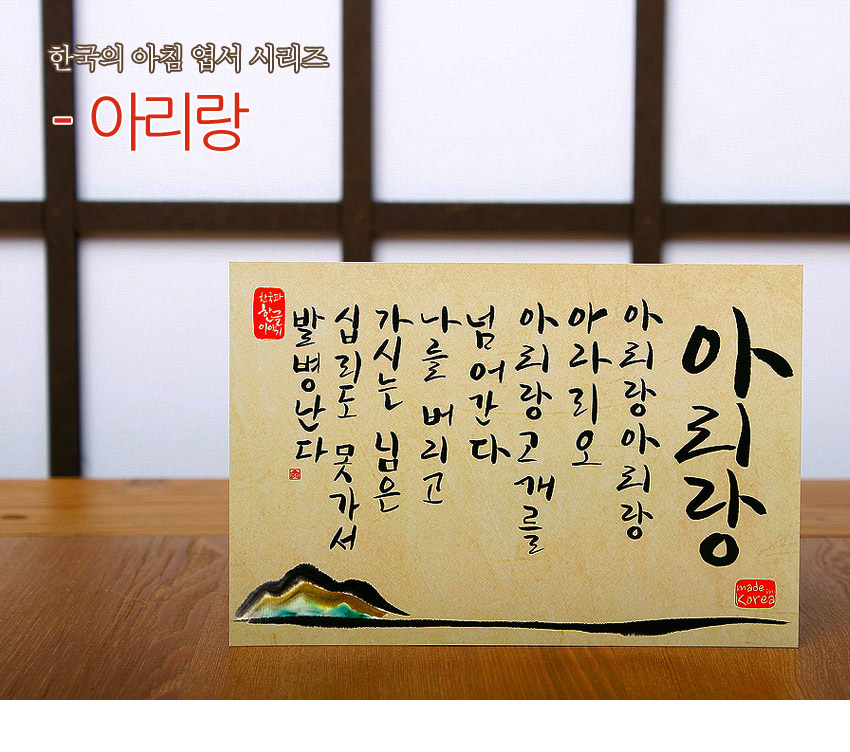 한국의 아침 엽서 시리즈
- 아리랑
아리랑
아리랑아리랑
아라리오
아리랑고개를
넘어간다
나를 버리고
가시는 님은
십리도 못가서
발병난다
한국과
한글
이야기
made in
Korea